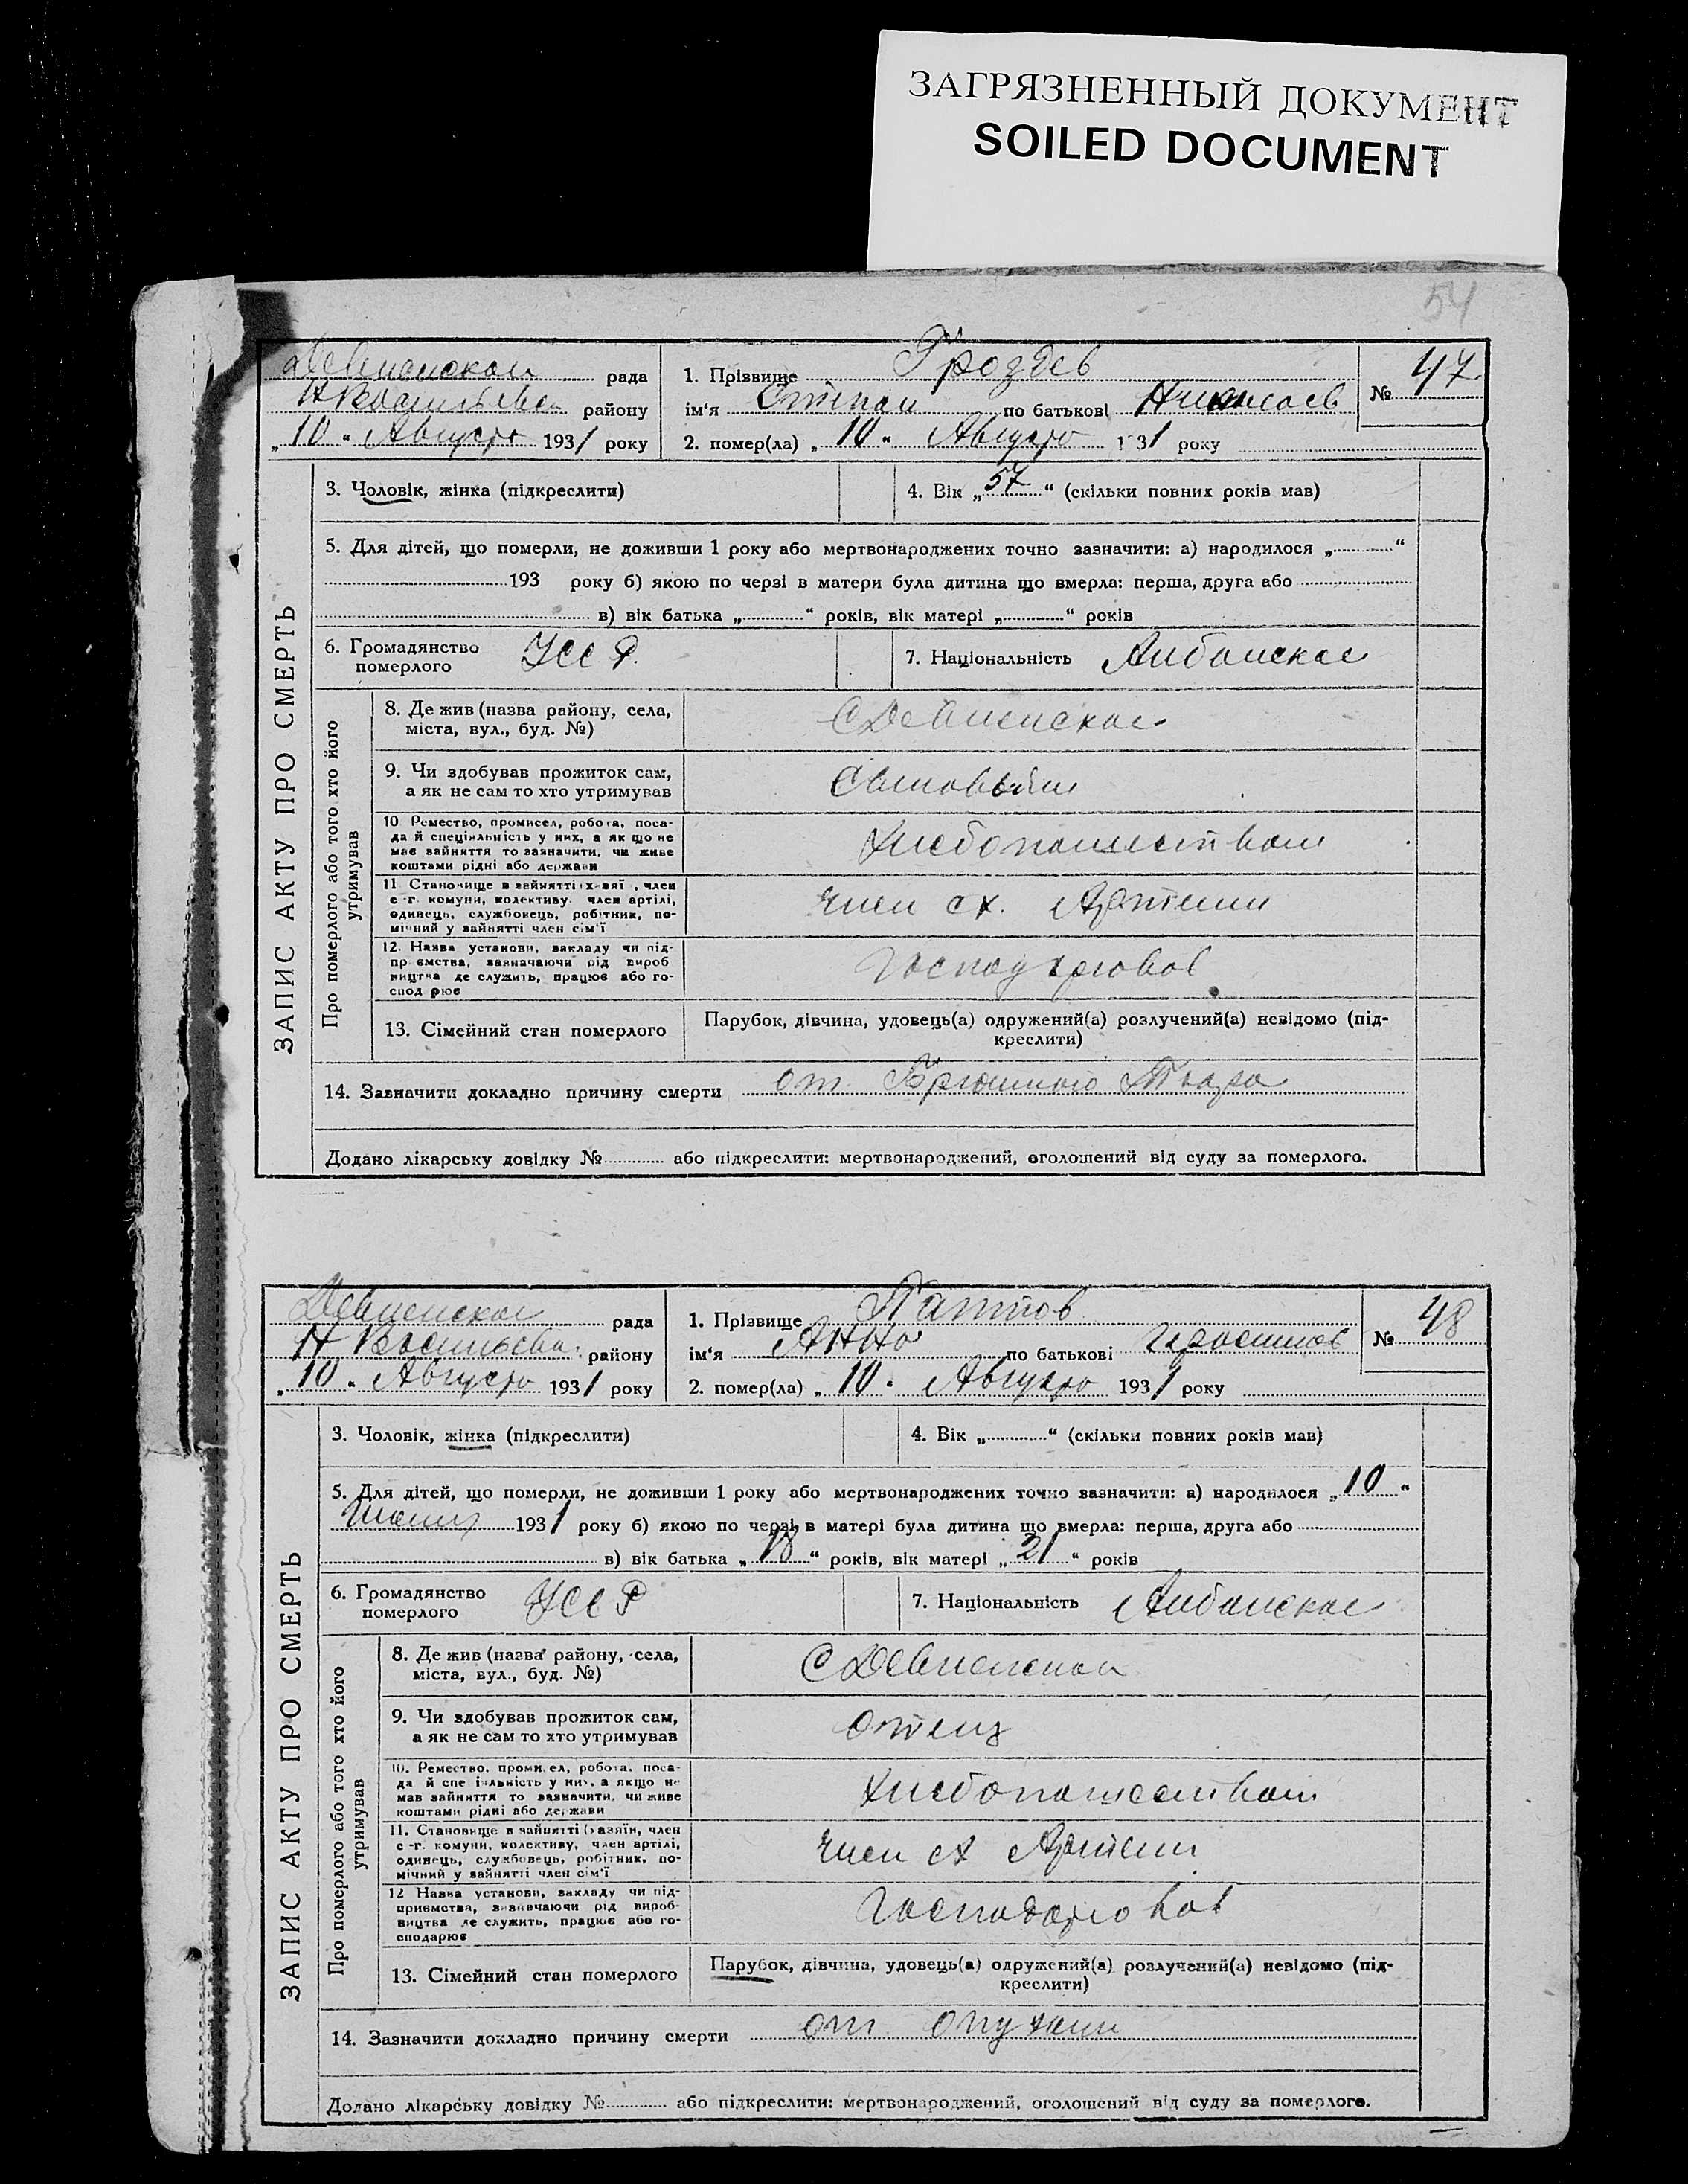 ЗАГРЯЗНЕННЫЙ ДОКУМЕНТ
SOILED DOCUMENT
54
Девненской рада
Н Васильевск району
„10“ Августа 1931 року
1. Прізвище Гроздев
ім‘я Степан по батькові Николаев
2. помер(ла) „10“ Августа 1931 року
№ 47
ЗАПИС АКТУ ПРО СМЕРТЬ
3. Чоловік, жінка (підкреслити)
4. Вік „57“ (скільки повних років мав)
5. Для дітей, що померли, не доживши 1 року або мертвонароджених точно зазначити: а) народилося „ “
193 року б) якою по черзі в матери була дитина що вмерла: перша, друга або
в) вік батька „ “ років, вік матері „ “ років
6. Громадянство
померлого УССР.
7. Національність Албанское
Про померлого або того хто його
утримував
8. Де жив (назва району, села,
міста, вул., буд. №)
С Девненское
9. Чи здобував прожиток сам,
а як не сам то хто утримував
10. Ремество, промисел, робота, поса-
да й спеціяльність у них, а як що не
має зайняття то зазначити, чи живе
коштами рідні або держави
Хлебопашеством
11. Становище в зайнятті (хазяї , член
с-г. комуни, колективу. член артілі,
одинець, службовець, робітник, по-
мічний у зайнятті член сім'ї
член сх. Артели
12. Назва установи, закладу чи під-
приємства, зазначаючи рід вироб
ництва де служить, працює або го-
сподарює
Господарював
13. Сімейний стан померлого
Парубок, дівчина, удовець(а) одружений(а) розлучений(а) невідомо (під-
креслити)
14. Зазначити докладно причину смерти от Брюшного Тифа
Додано лікарську довідку № або підкреслити: мертвонароджений, оголошений від суду за померлого.
Девненское рада
Н Васильевск. району
„10“ Августа 1931 року
1. Прізвище
ім‘я Анна по батькові Герасимов
2. помер(ла) „10“ Августа 1931 року
№ 48
ЗАПИС АКТУ ПРО СМЕРТЬ
3. Чоловік, жінка (підкреслити)
4. Вік „ “ (скільки повних років мав)
5. Для дітей, що померли, не доживши 1 року або мертвонароджених точно зазначити: а) народилося „10“
1931 року б) якою по черзі в матері була дитина що вмерла: перша, друга або
в) вік батька „18“ років, вік матері „21“ років
6. Громадянство
померлого УССР
7. Національність Албанское
Про померлого або того хто його
утримував
8. Де жив (назва району, села,
міста, вул., буд. №)
С Девненской
9. Чи здобував прожиток сам,
а як не сам то хто утримував
Отец
10. Ремество, промисел, робота, поса-
да й спеціяльність у них, а якщо не
мав зайняття то зазначити, чи живе
коштами рідні або держави
Хлебопашеством
11. Становище в зайнятті (хазяїн, член
с-г. комуни, колективу, член артілі,
одинець, службовець, робітник, по-
мічний у зайнятті член сім'ї
член сх Артели
12 Назва установи, закладу чи під-
приємства, зазначаючи рід вироб-
ництва де служить, працює або го-
сподарює
Господарював
13. Сімейний стан померлого
Парубок, дівчина, удовець(а) одружений(а) розлучений(а) невідомо (під-
креслити)
14. Зазначити докладно причину смерти от опухали
Додано лікарську довідку № або підкреслити: мертвонароджений, оголошений від суду за померлого.